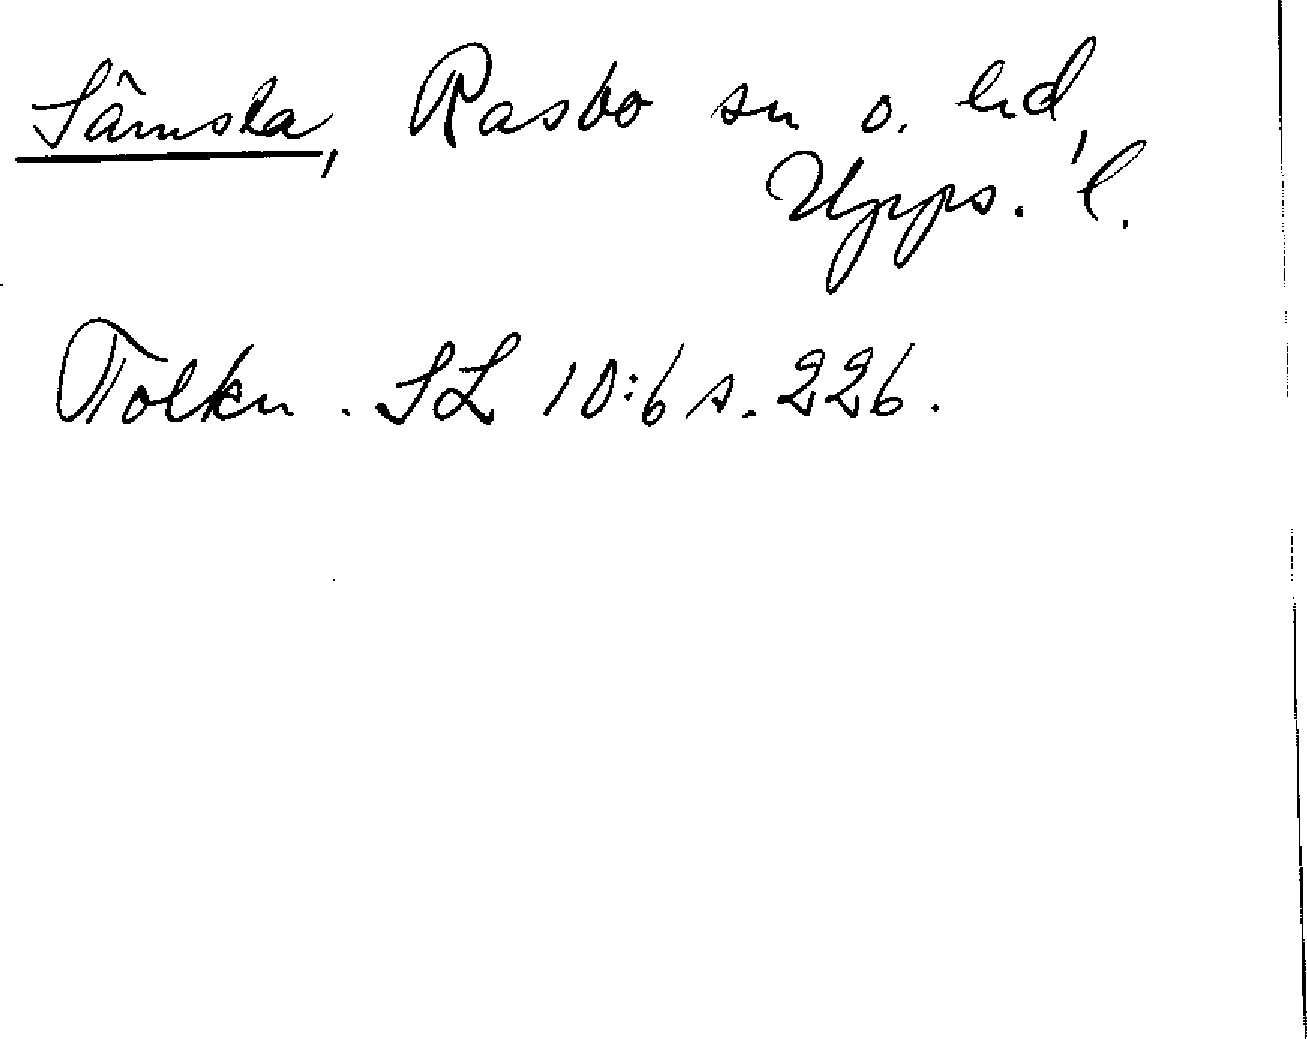 Sämsta, Rasbo sn o. hd,
Upps. l.
Tolkn. SL 10:6 s. 226.